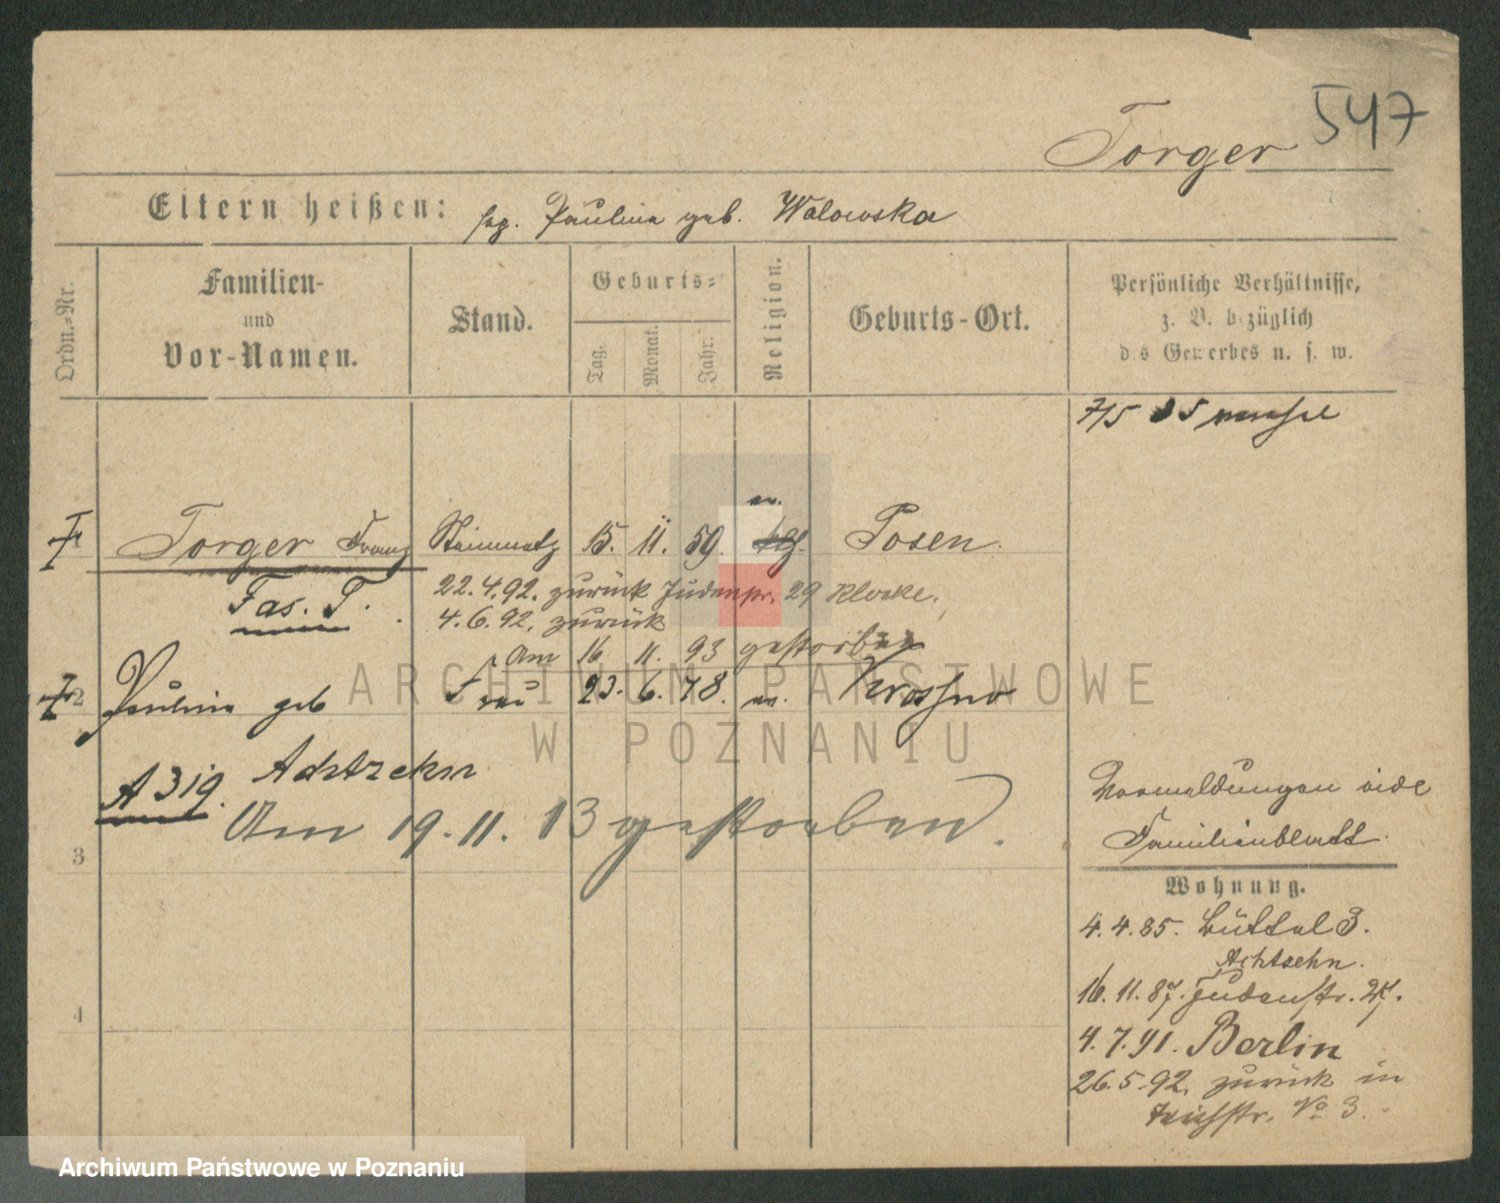 547
Torger
Eltern heißen: Paulina geb. Walowska
Ordn.-Nr.
Familien-
und
Vor-Namen.
Stand.
Geburts-
Tag.
Monat.
Jahr.
Religion.
Geburts-Ort.
Persönliche Verhältnisse,
z. B. bezüglich
des Gewerbes u. s. w.
7/5 85
ev.
1 Torger Franz Steinmetz 15. 11. 59. Posen.
Fas. T.
22.4.92. zurück Judenstr. 29
4.6.92. zurück
Am 16 11. 93 gestorben
2 Paulina geb Frau 23. 6. 78. ev. Krossno
Achtzehn
A 319.
Am 19. 11. 13 gestorben.
3
4
Vormeldungen vide
Familienblatt.
Wohnung.
4.4.85. Büttel 3.
Achtzehn.
16.11.87. Judenstr. 27.
4.7.91. Berlin
26.5.92. zurück in
No 3.
ARCHIWUM PAŃSTWOWE
W POZNANIU
Archiwum Państwowe w Poznaniu